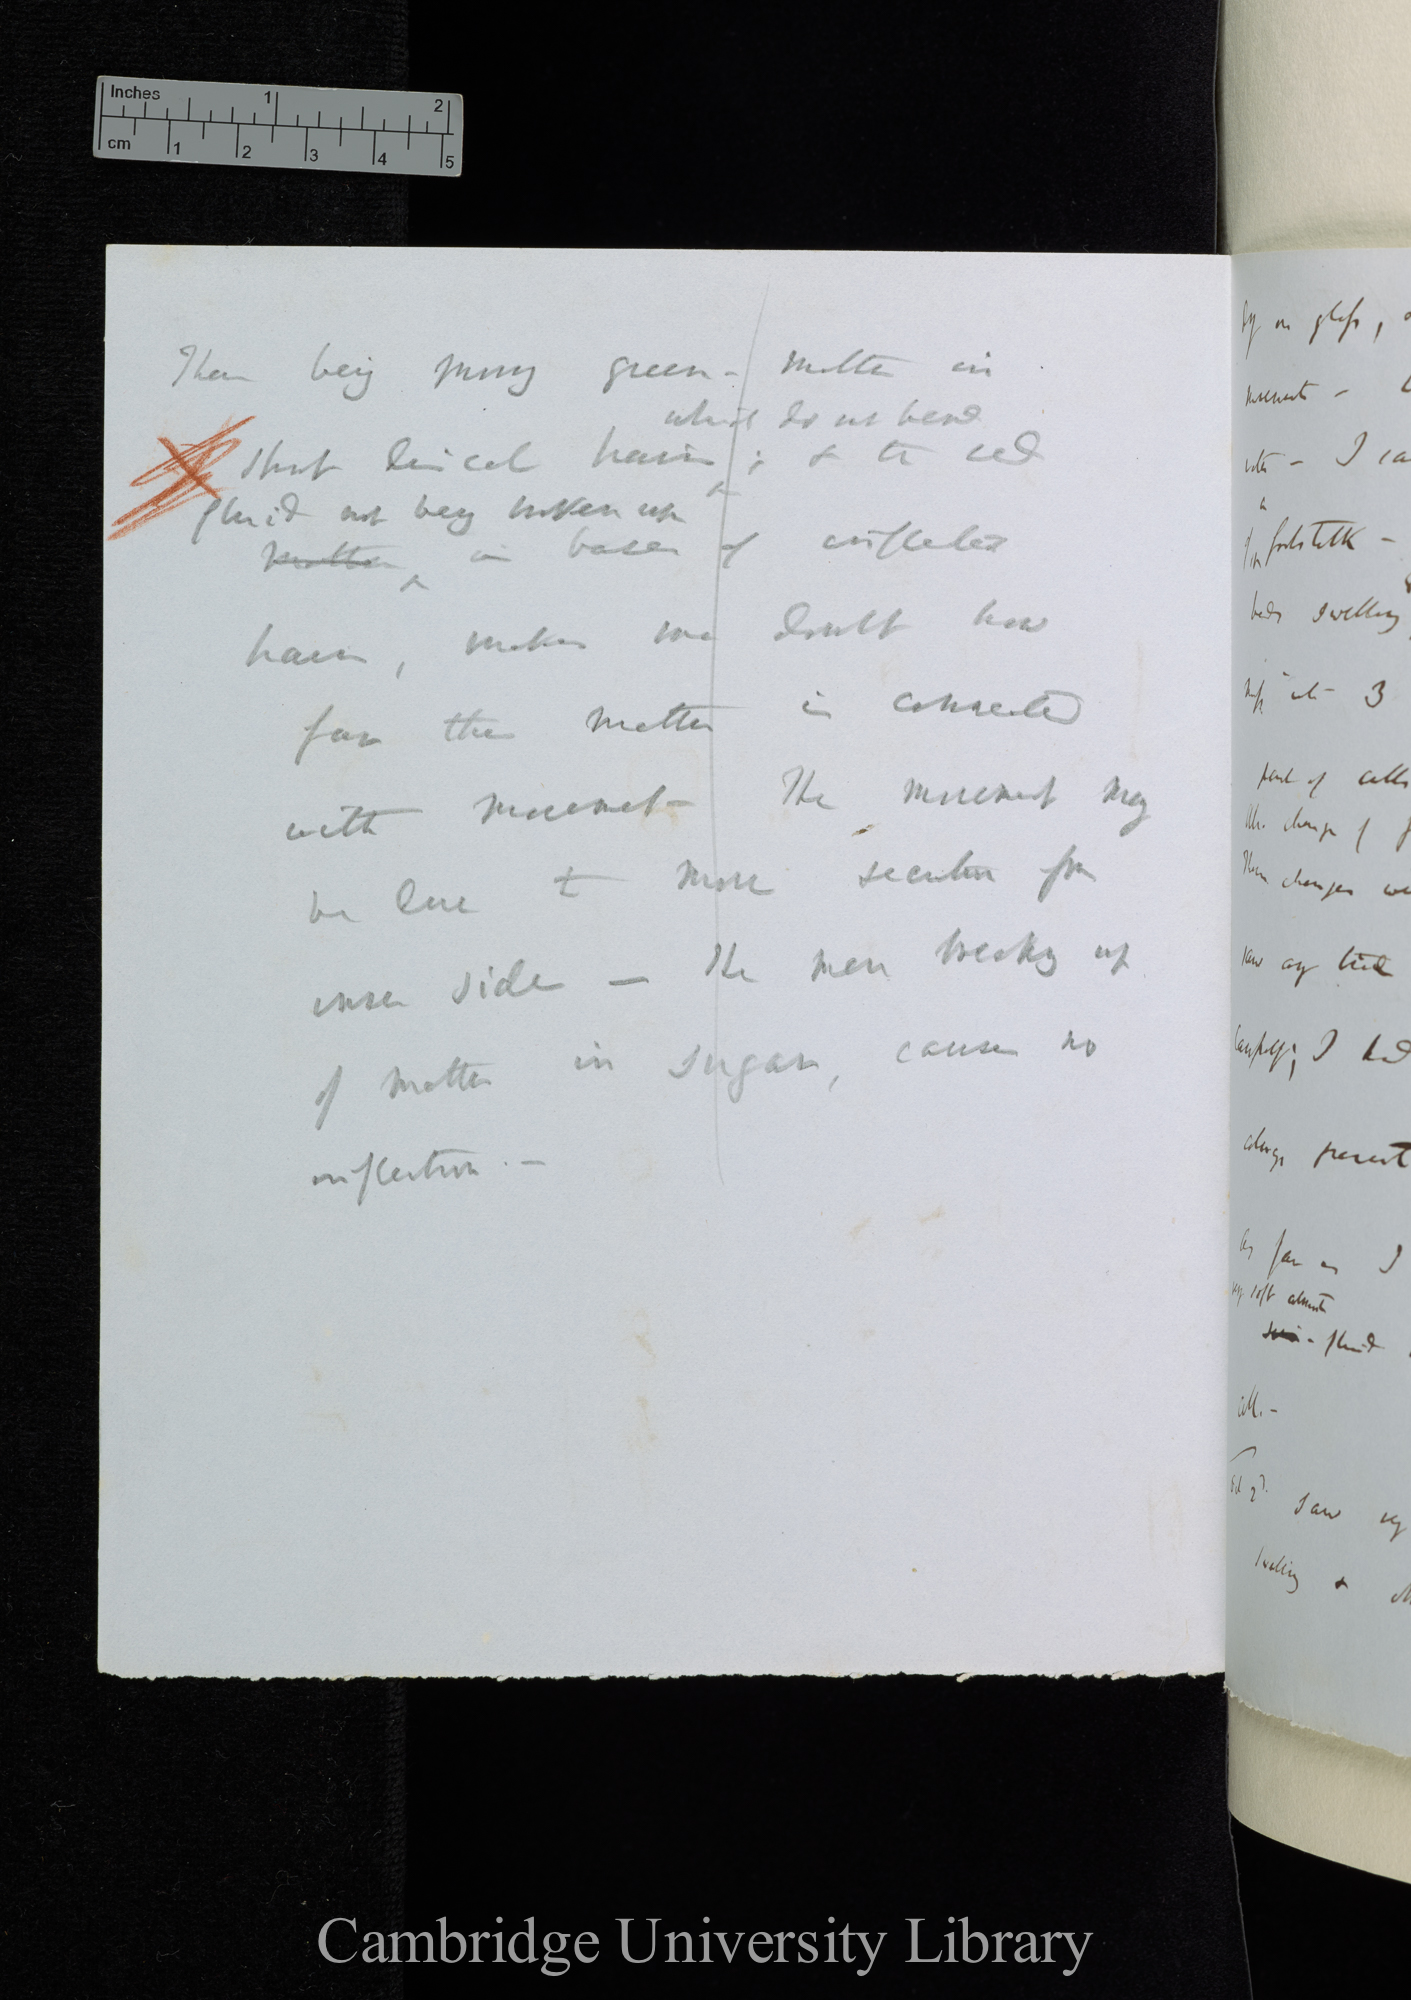 Inches 1 2
cm 1 2 3 4 5
There being many green - matter in
which do not bend
short conical hairs ; & the red
fluid not being broken up
matter in bases of inflected
hairs, makes me doubt how
far the matter is connected
with movement - The movement may
be due to more secretion from
inner side — The mere breaking up
of matter in sugar, causes no
inflection. —
on glass,
movements -
water - I ca
a
footstalk -
beds swelling
3
part of cells
change of
Then changes we
saw any
I had
always present
as far as I
very soft almost
semi - fluid
cell. -
saw
swelling &
Cambridge University Library